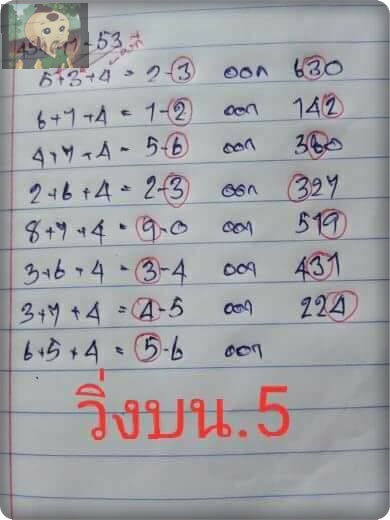 5+3+4 = 2-3 ออก 630
6+7+4 = 1-2 ออก 142
4+7+4 = 5-6 ออก 360
2+6+4 = 2-3 ออก 327
8+7+4 = 9-0 ออก 519
3+6+4 = 3-4 ออก 431
3+7+4 = 4-5 ออก 224
6+5+4 = 5-6 ออก
วิ่งบน.5